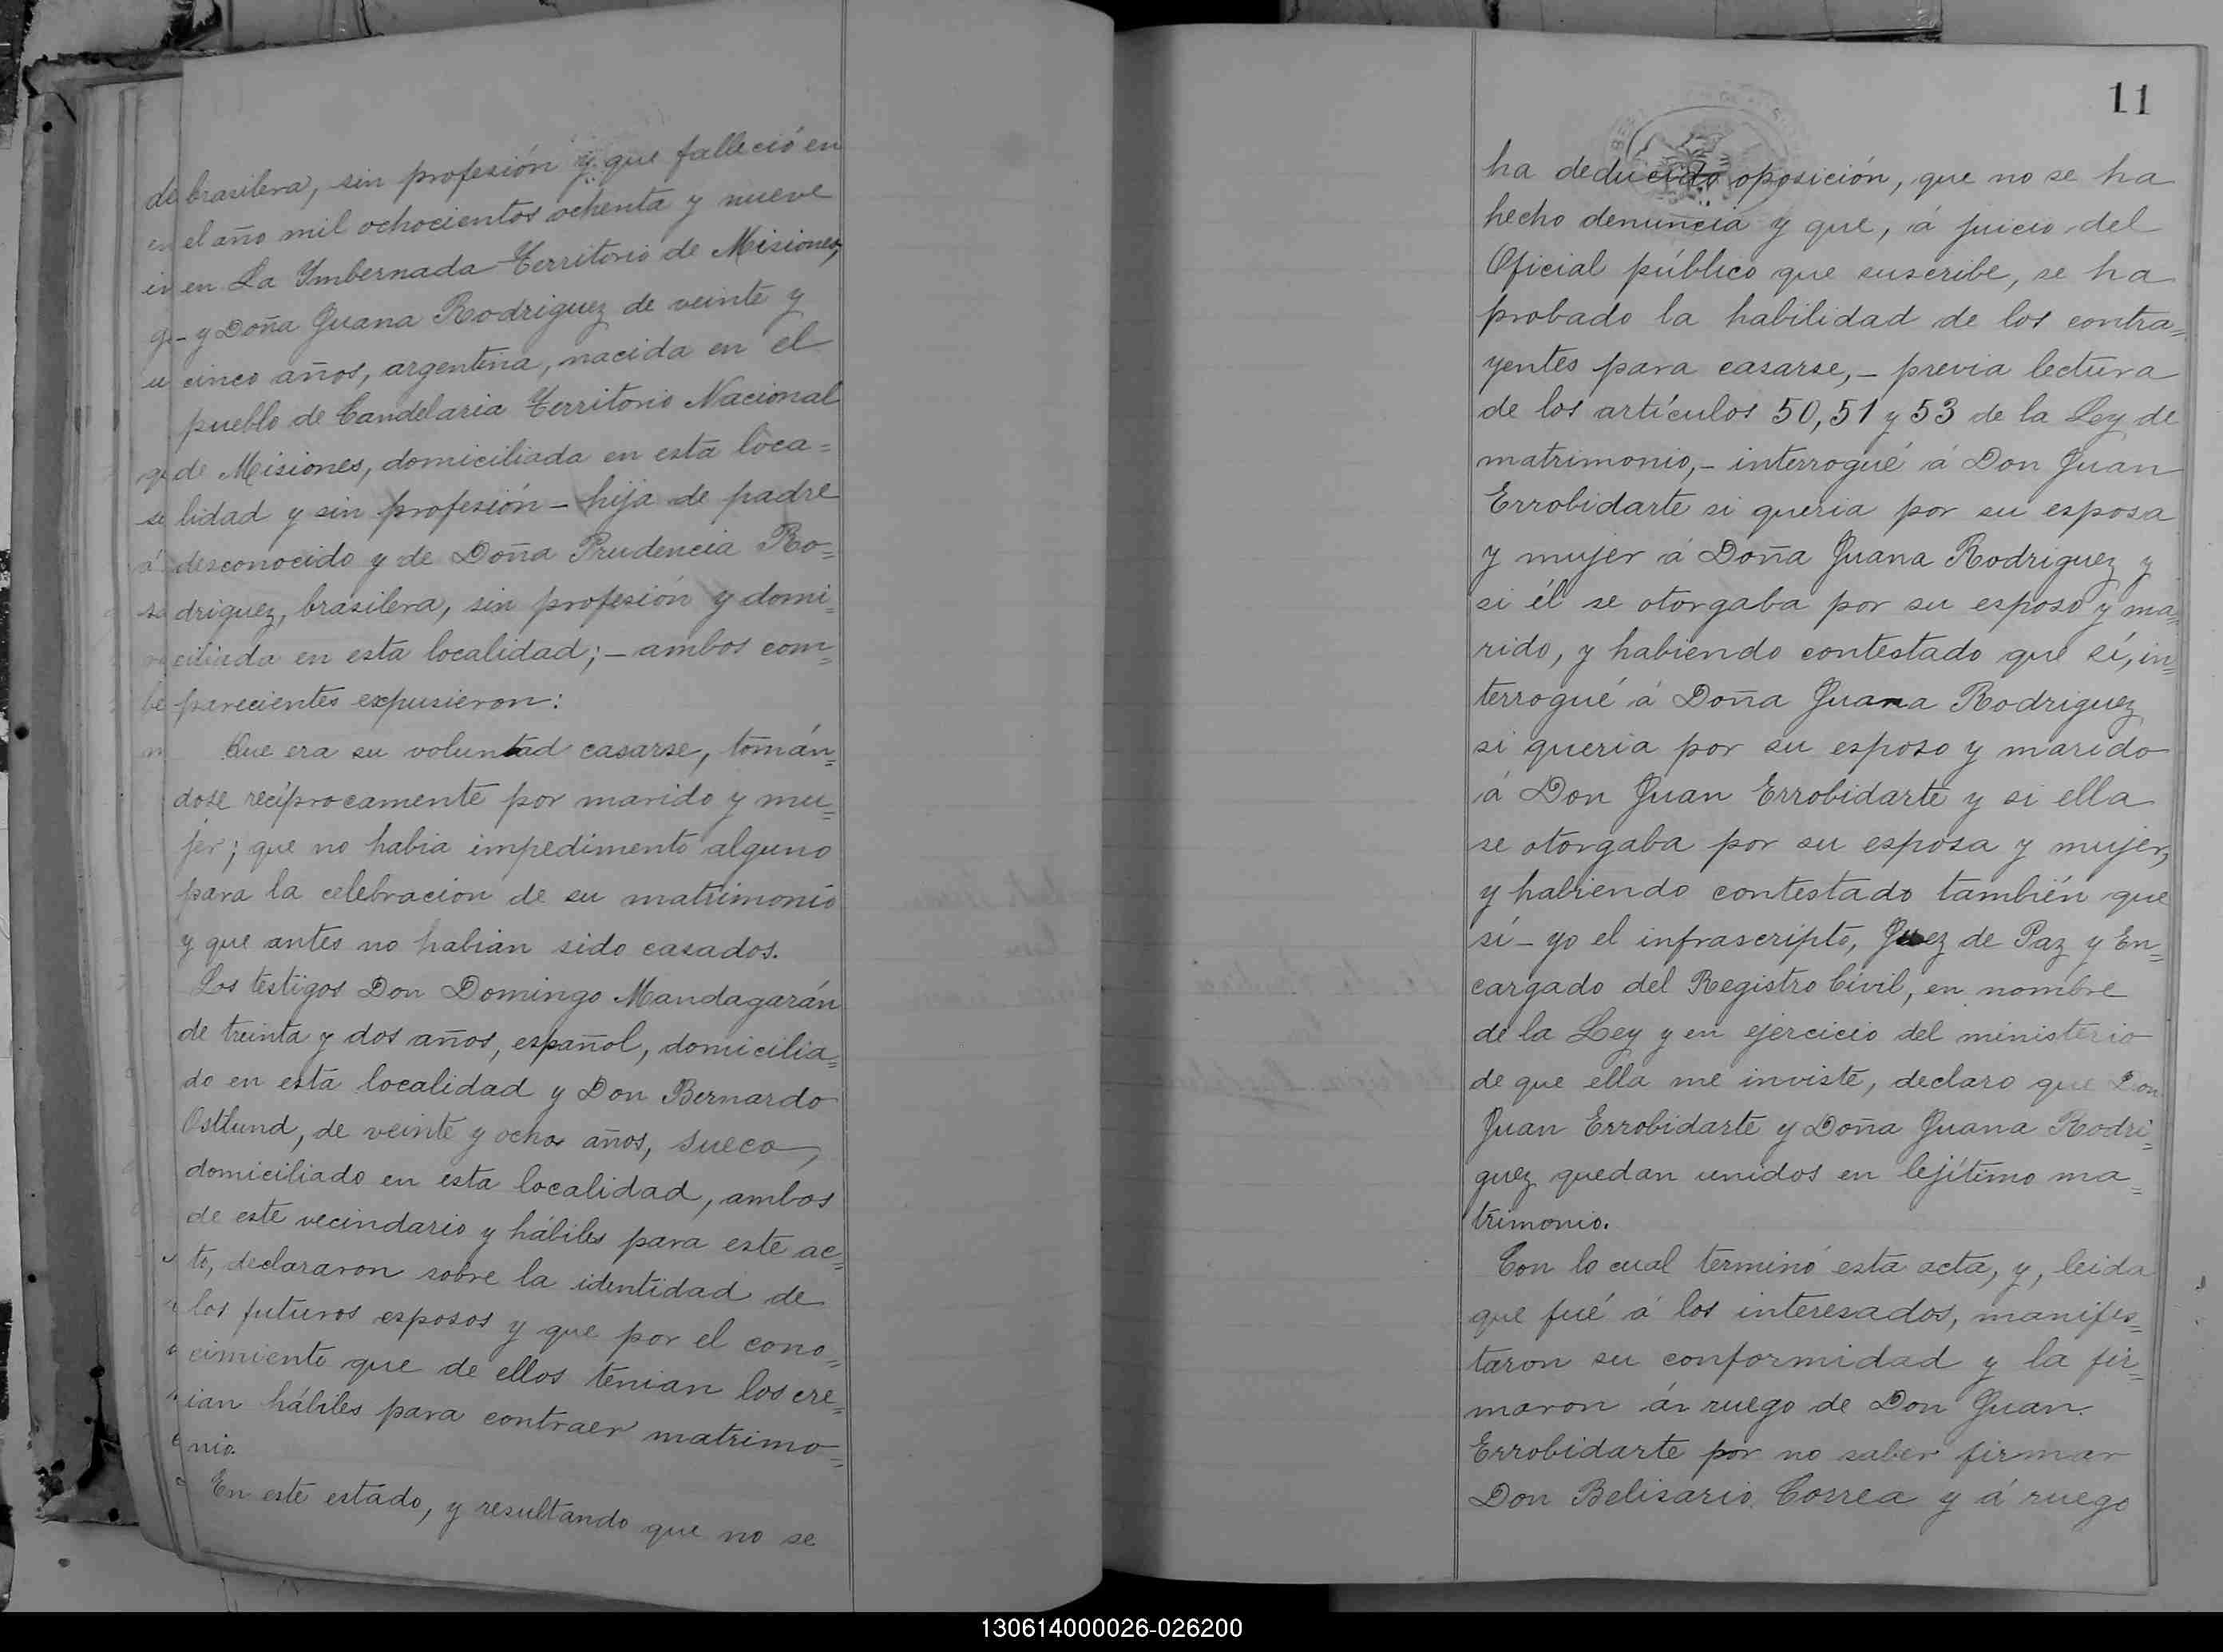 brasilera, sin profesión y que falleció en
el año mil ochocientos ochenta y nueve
en La Ymbernada Territorio de Misiones,
- y Doña Juana Rodriguez de veinte y
cinco años, argentina, nacida en el
pueblo de Candelaria Territorio Nacional
de Misiones, domiciliada en esta loca=
lidad y sin profesión - hija de padre
desconocido y de Doña Prudencia Ro=
driguez, brasilera, sin profesión y domi=
ciliada en esta localidad; - ambos com=
parecientes expusieron:
Que era su voluntad casarse, tomán=
dose recíprocamente por marido y mu=
jer; que no habia impedimento alguno
para la celebracion de su matrimonio
y que antes no habian sido casados.
Los testigos Don Domingo Mandagarán
de treinta y dos años, español, domicilia=
do en esta localidad y Don Bernardo
Ostlund, de veinte y ocho años, sueco,
domiciliado en esta localidad, ambos
de este vecindario y hábiles para este ac=
to, declararon sobre la identidad de
los futuros esposos y que por el cono=
cimiento que de ellos tenian los cre=
ian hábiles para contraer matrimo=
nio.
En este estado, y resultando que no se
11
ha deducido oposición, que no se ha
hecho denuncia y que, á juicio del
Oficial público que suscribe, se ha
probado la habilidad de los contra=
yentes para casarse, - previa lectura
de los artículos 50, 51 y 53 de la Ley de
matrimonio, - interrogué á Don Juan
Errobidarte si queria por su esposa
y mujer á Doña Juana Rodriguez y
si él se otorgaba por su esposo y ma=
rido, y habiendo contestado que sí, in=
terrogué á Doña Juana Rodriguez
si queria por su esposo y marido
á Don Juan Errobidarte y si ella
se otorgaba por su esposa y mujer,
y habiendo contestado también que
sí - yo el infrascripto, Juez de Paz y En=
cargado del Registro Civil, en nombre
de la Ley y en ejercicio del ministerio
de que ella me inviste, declaro que Don
Juan Errobidarte y Doña Juana Rodri=
guez quedan unidos en lejítimo ma=
trimonio.
Con lo cual terminó esta acta, y, leida
que fué á los interesados, manifes=
taron su conformidad y la fir=
maron á ruego de Don Juan
Errobidarte por no saber firmar
Don Belisario Correa y á ruego
130614000026-026200